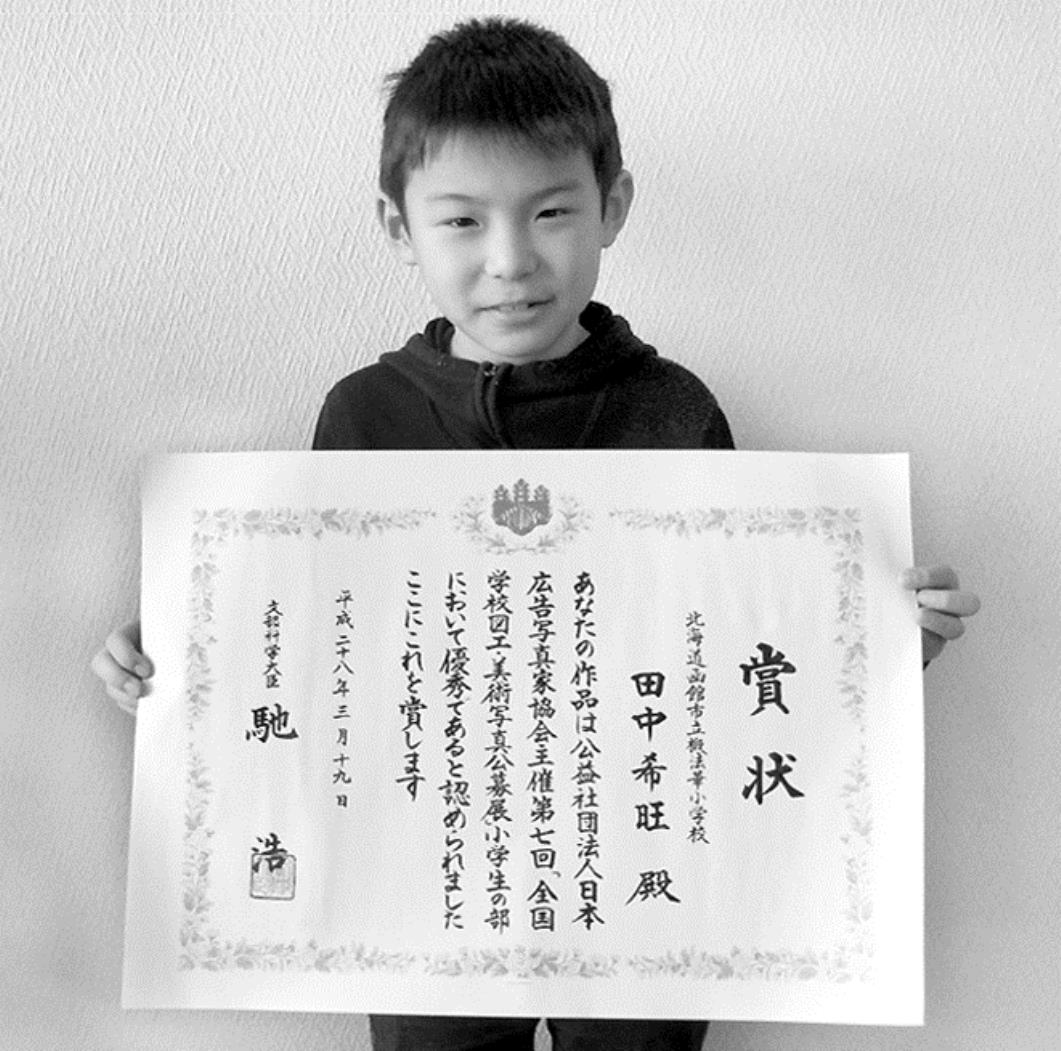 賞状
北海道函館市立椴法華小学校
田中希旺 殿
あなたの作品は公益社団法人日本
広告写真家協会主催第七回、全国
学校図工・美術写真公募展小学生の部
において優秀であると認められました
ここにこれを賞します
平成二十八年三月十九日
文部科学大臣 馳 浩